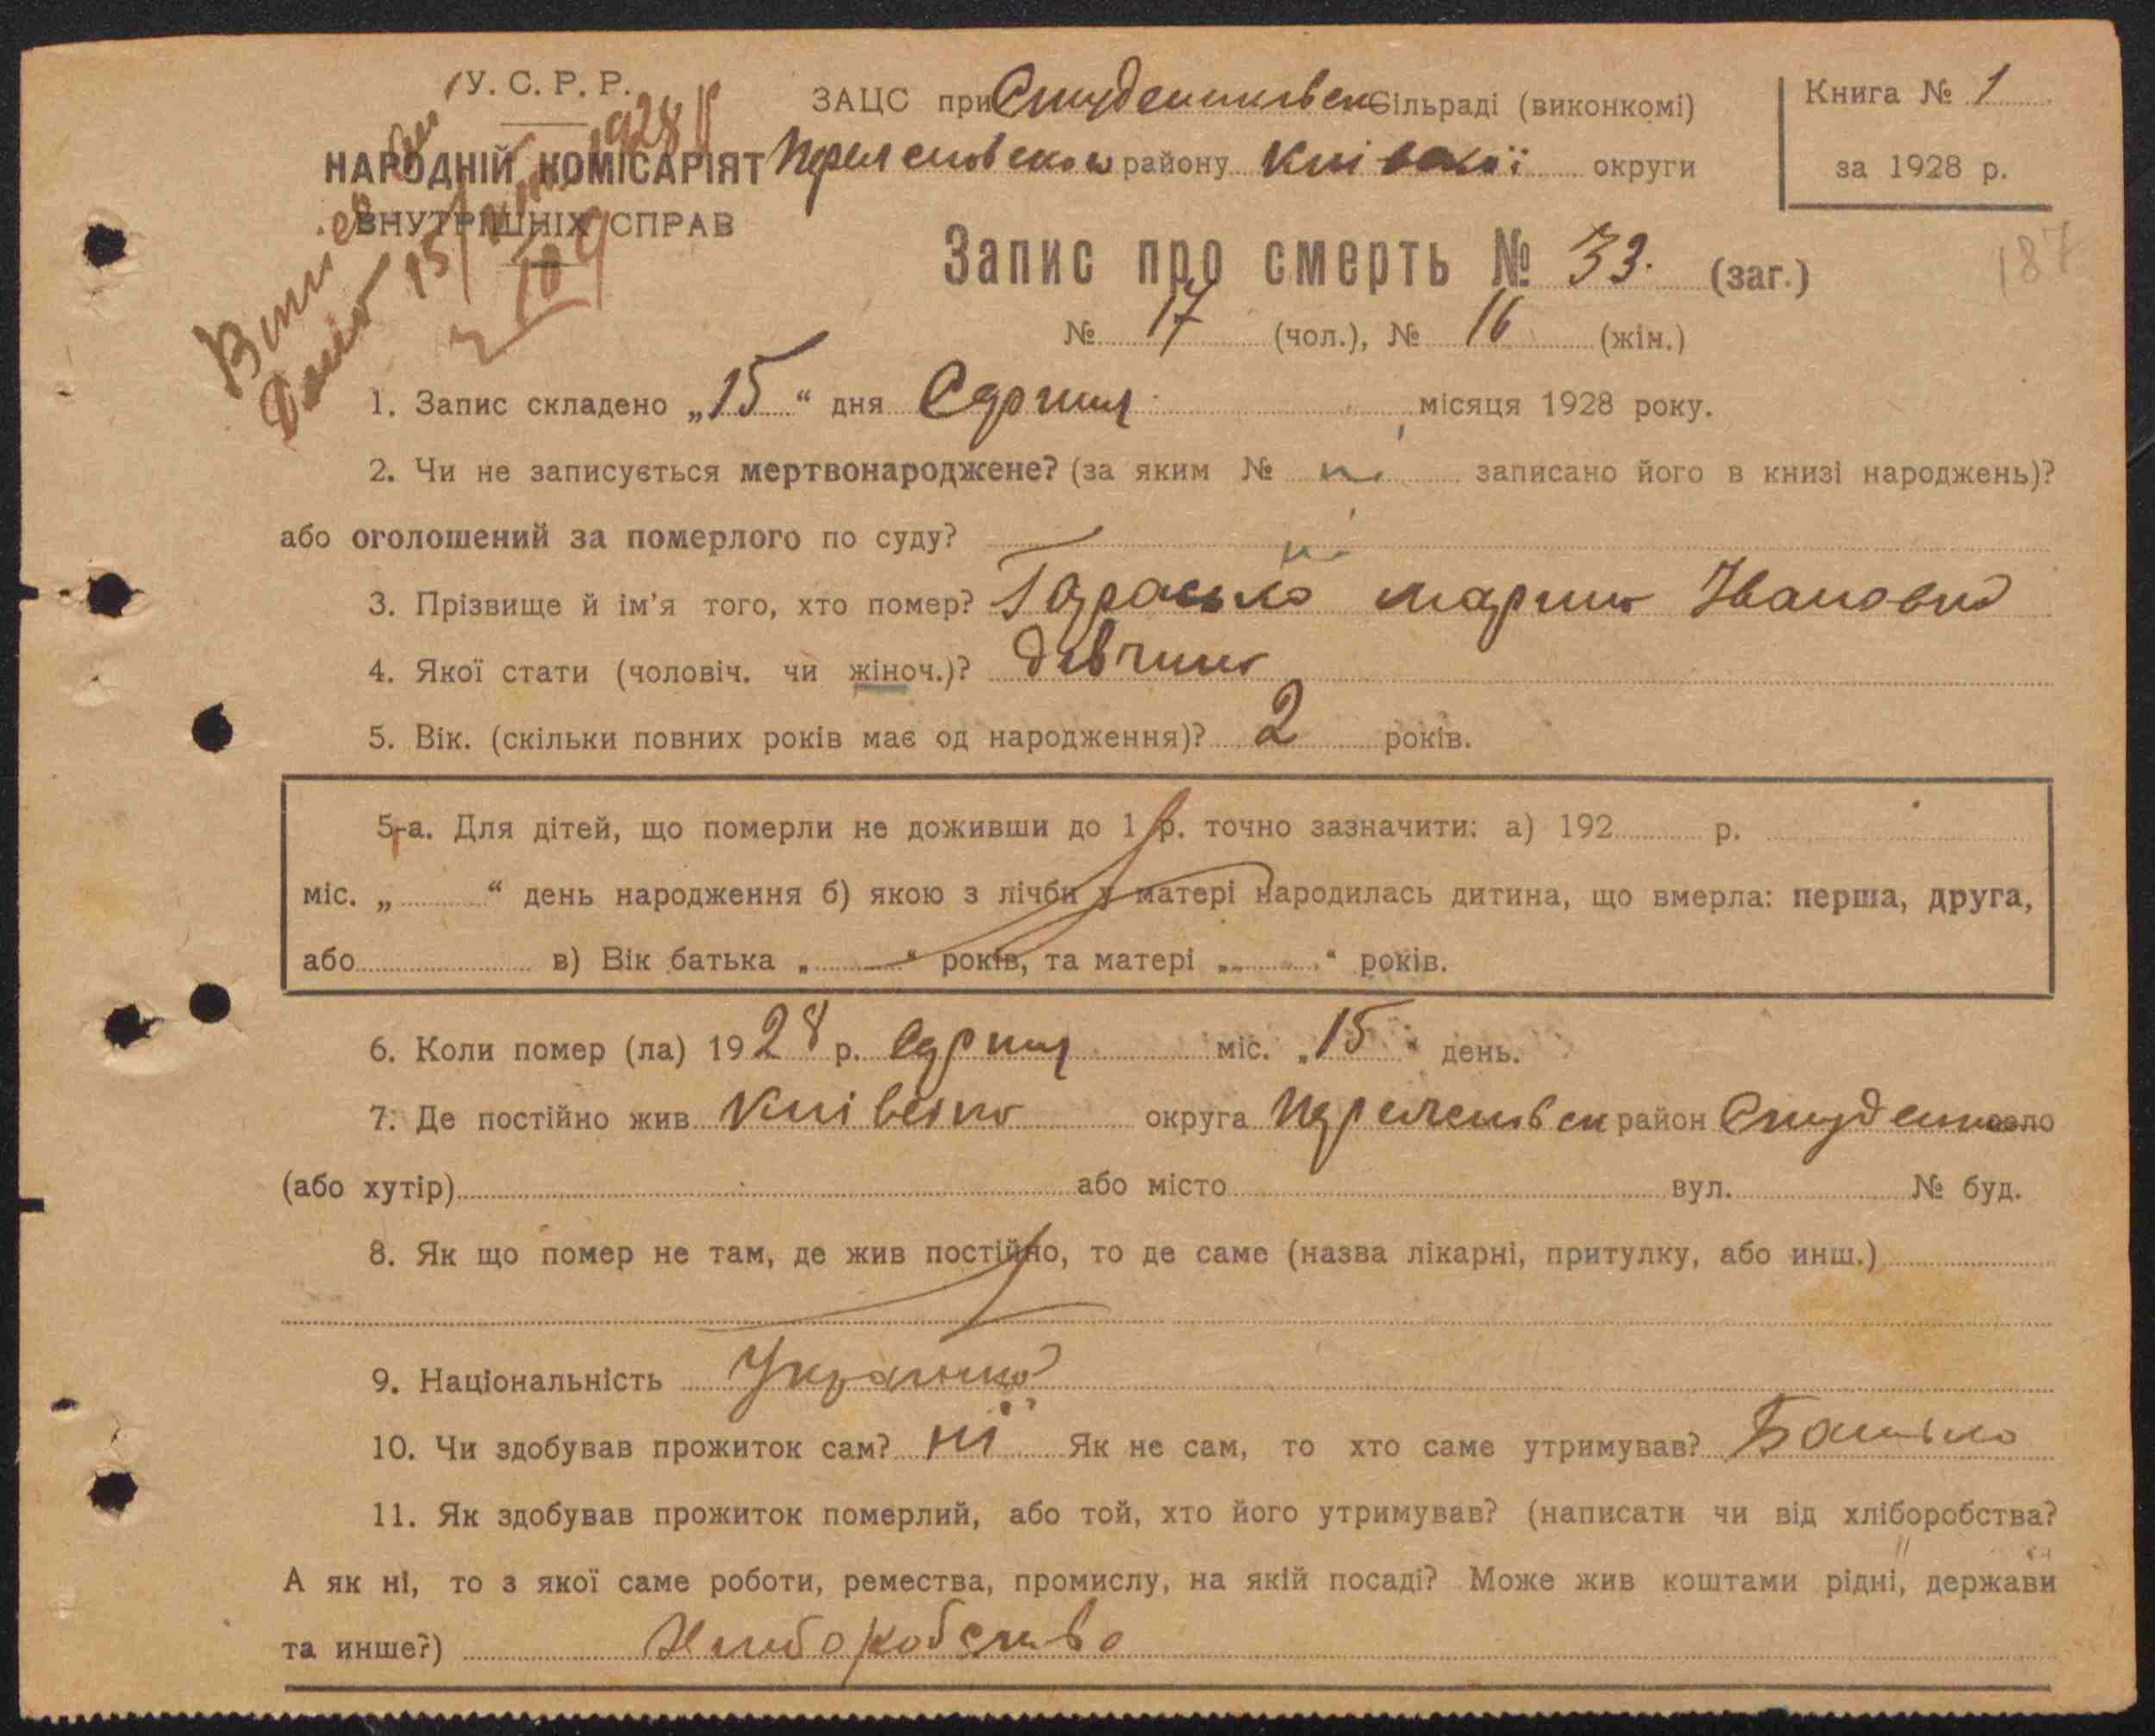 У. С. Р. Р.
НАРОДНІЙ КОМІСАРІЯТ
ВНУТРІШНІХ СПРАВ
1928 р
15/
ЗАЦС при Студениківськ сільраді (виконкомі)
району Київської округи
Книга № 1
за 1928 р.
187
Запис про смерть № 33. (заг.)
№ 17 (чол.), № 16 (жін.)
1. Запис складено „15“ дня Серпня місяця 1928 року.
2. Чи не записується мертвонароджене? (за яким № ні записано його в книзі народжень)?
або оголошений за померлого по суду? ні
3. Прізвище й ім'я того, хто помер? Марина Івановна
4. Якої стати (чоловіч. чи жіноч.)? дівчина
5. Вік. (скільки повних років має од народження)? 2 років.
5-а. Для дітей, що померли не доживши до 1 р. точно зазначити: а) 192 р.
міс. „ “ день народження б) якою з лічби у матері народилась дитина, що вмерла: перша, друга,
або в) Вік батька „ “ років, та матері „ “ років.
6. Коли помер (ла) 1928 р. Серпня міс. „15“ день.
7. Де постійно жив Київська округа район село
(або хутір) або місто вул. № буд.
8. Як що помер не там, де жив постійно, то де саме (назва лікарні, притулку, або инш.)
9. Національність Українка
10. Чи здобував прожиток сам? ні Як не сам, то хто саме утримував? Батько
11. Як здобував прожиток померлий, або той, хто його утримував? (написати чи від хліборобства?
А як ні, то з якої саме роботи, ремества, промислу, на якій посаді? Може жив коштами рідні, держави
та инше?) Хліборобство